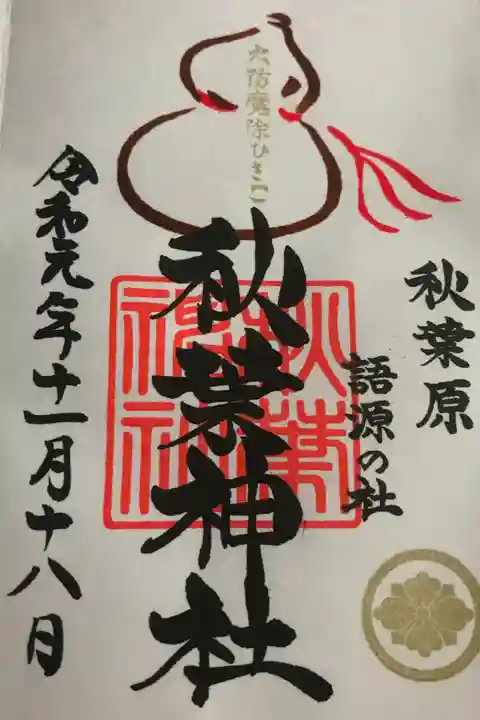 秋葉原
語源の社
火防魔除ひさご
秋葉神社
令和元年十一月十八日